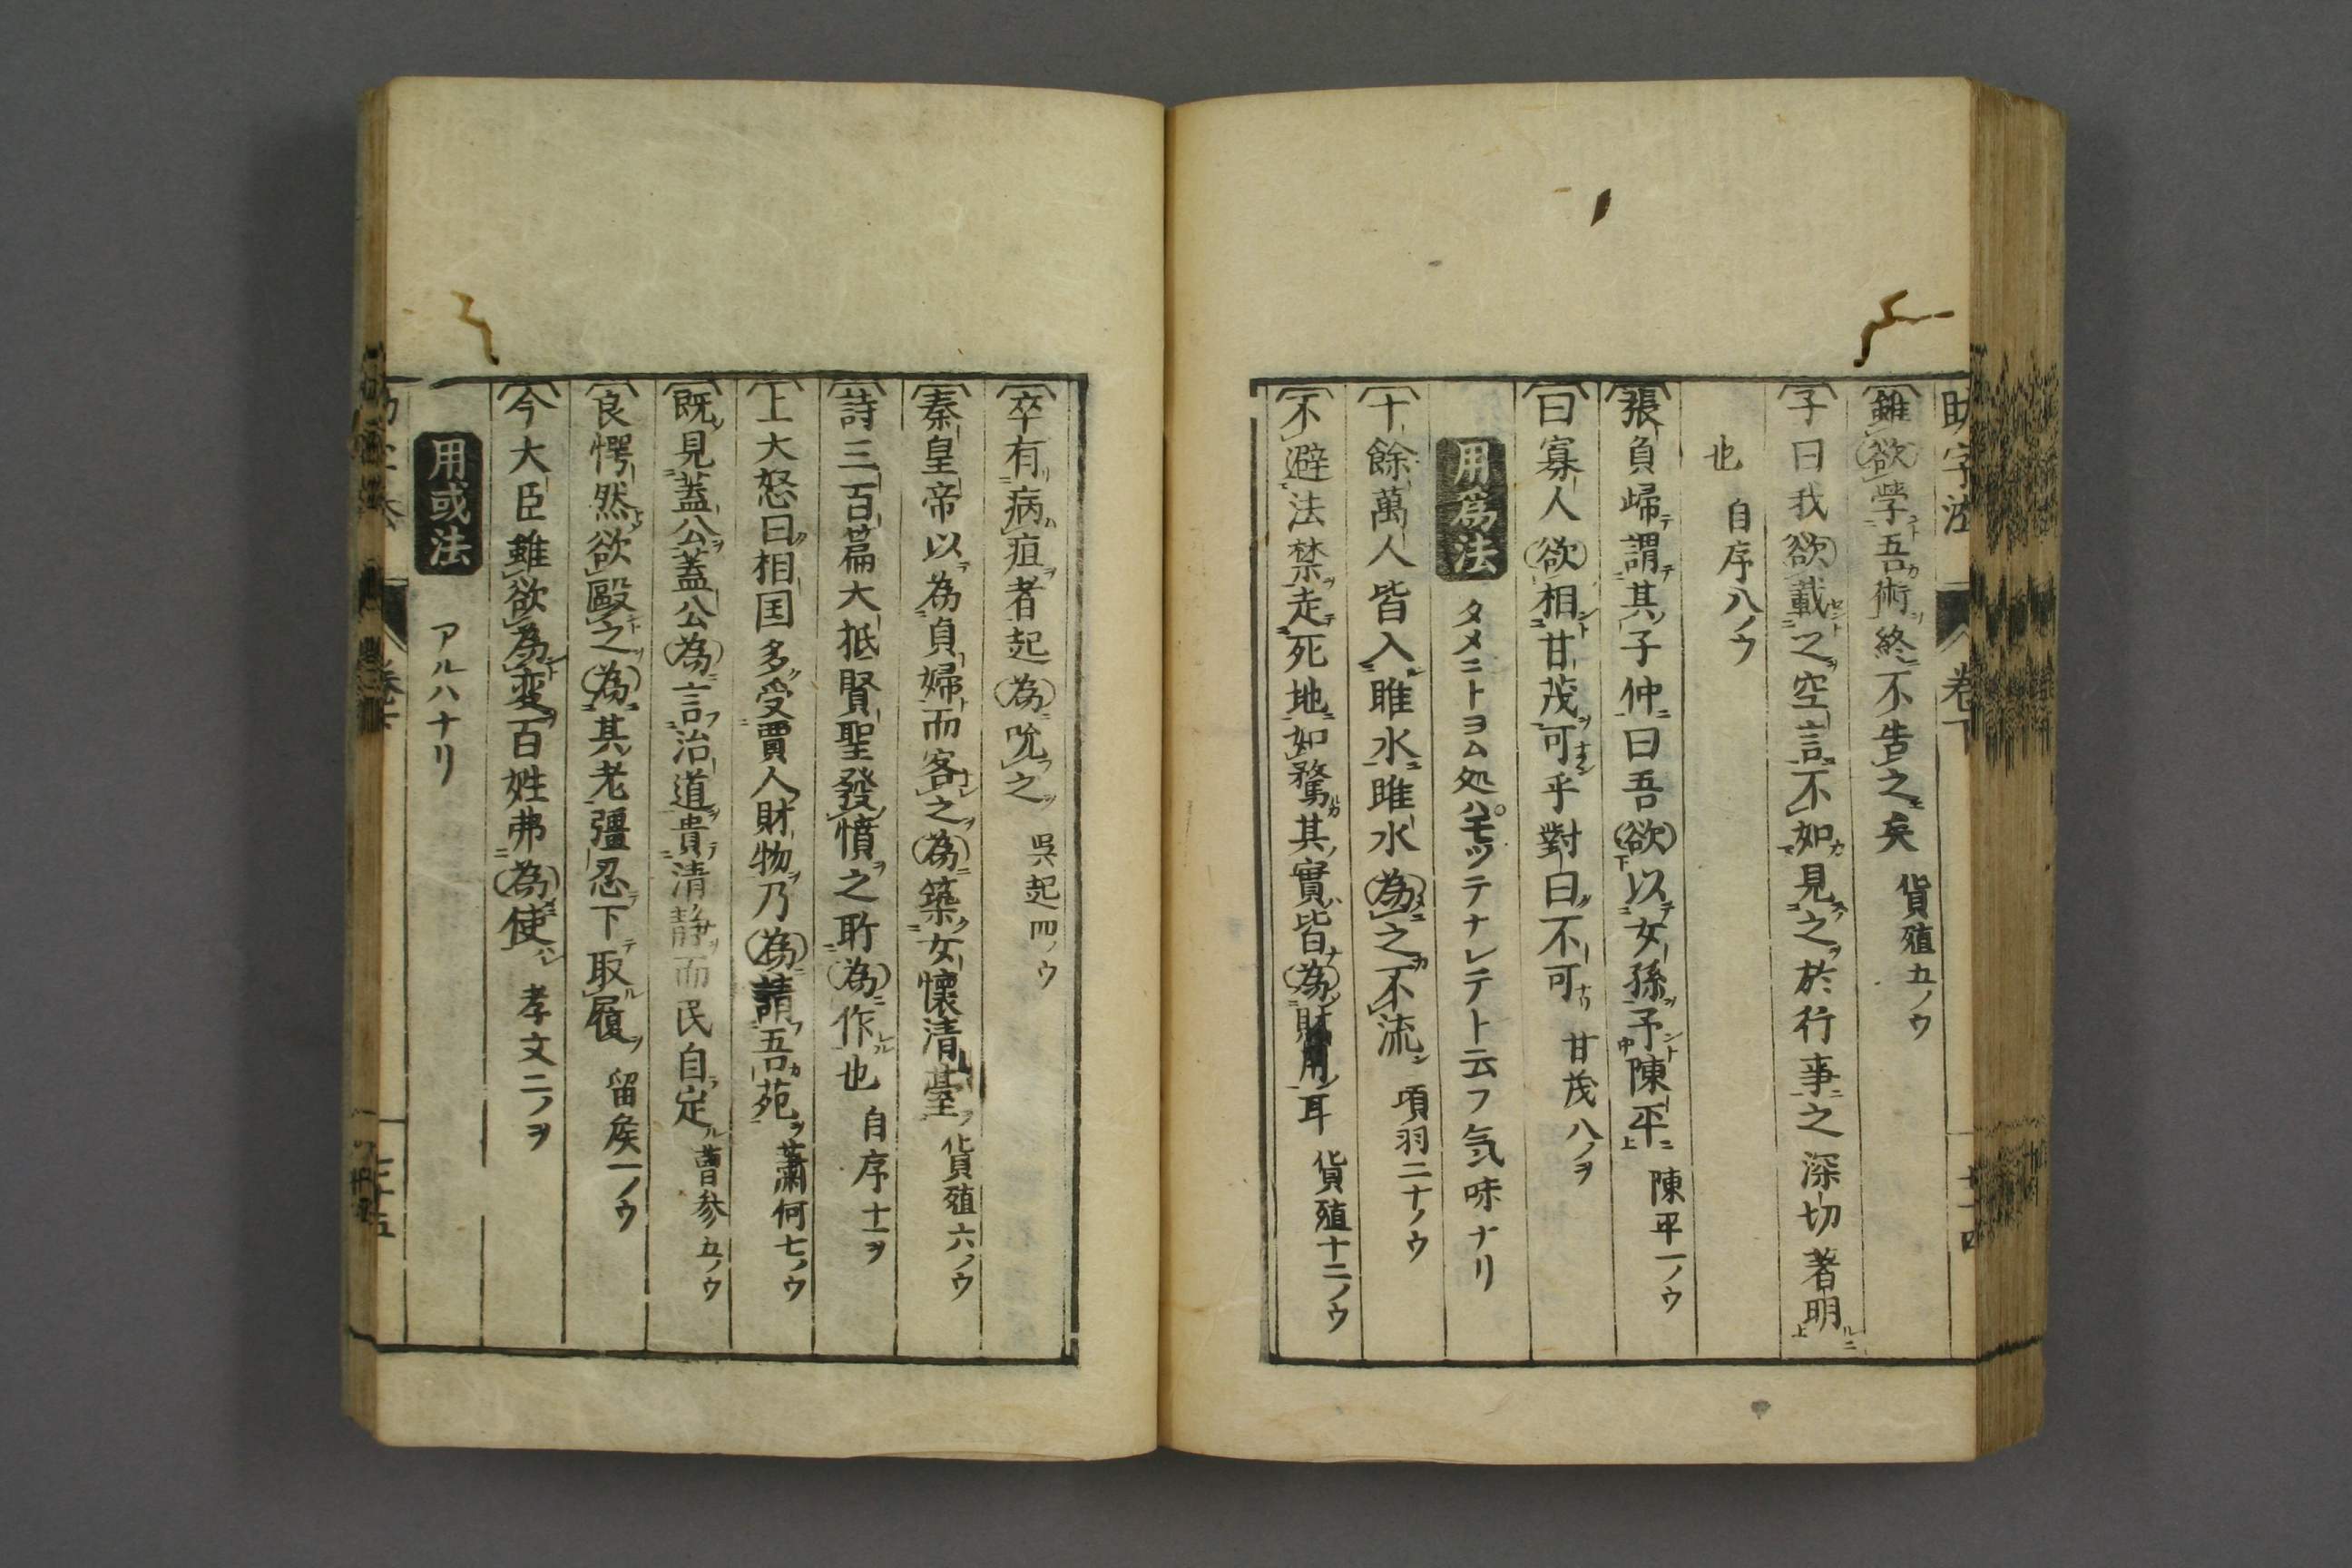 助字法 卷下
雖欲學吾術終不告之矣 貨殖五ノウ
子曰我欲載之空言不如見之於行事之深切著明
也 自序八ノウ
張負歸謂其子仲曰吾欲以女孫予陳平 陳平一ノウ
曰寡人欲相甘茂可乎對曰不可 甘茂八ノヲ
用為法 タメニトヨム処ハモツテナレテト云フ気味ナリ
十餘萬人皆入睢水睢水為之不流 項羽二十ノウ
不避法禁走死地如騖其實皆為財用耳 貨殖十二ノウ
卒有病疽者起為吮之 吳起四ノウ
秦皇帝以為貞婦而客之為築女懷清臺 貨殖六ノウ
詩三百篇大抵賢聖發憤之所為作也 自序十一ヲ
上大怒曰相国多受賈人財物乃為請吾苑 蕭何七ノウ
既見蓋公蓋公為言治道貴清静而民自定 曹参五ノウ
良愕然欲毆之為其老彊忍下取履 留矦一ノウ
今大臣雖欲為変百姓弗為使 孝文二ノヲ
用或法 アルハナリ